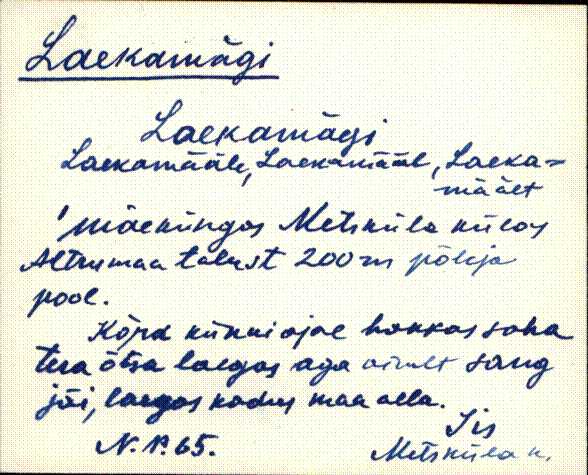 Laekamägi
Laekamägi
Laekamääle, Laekamääl, Laeka-
mäält
'mäeküngas Metsküla külas
Altnurmaa talust 200 m põhja
pool.
Kord künni ajal hakkas saha
tera otsa laegas aga ainult sang
jäi, laegas kadus maa alla.
Jis
N. P. 65.
Metsküla k.